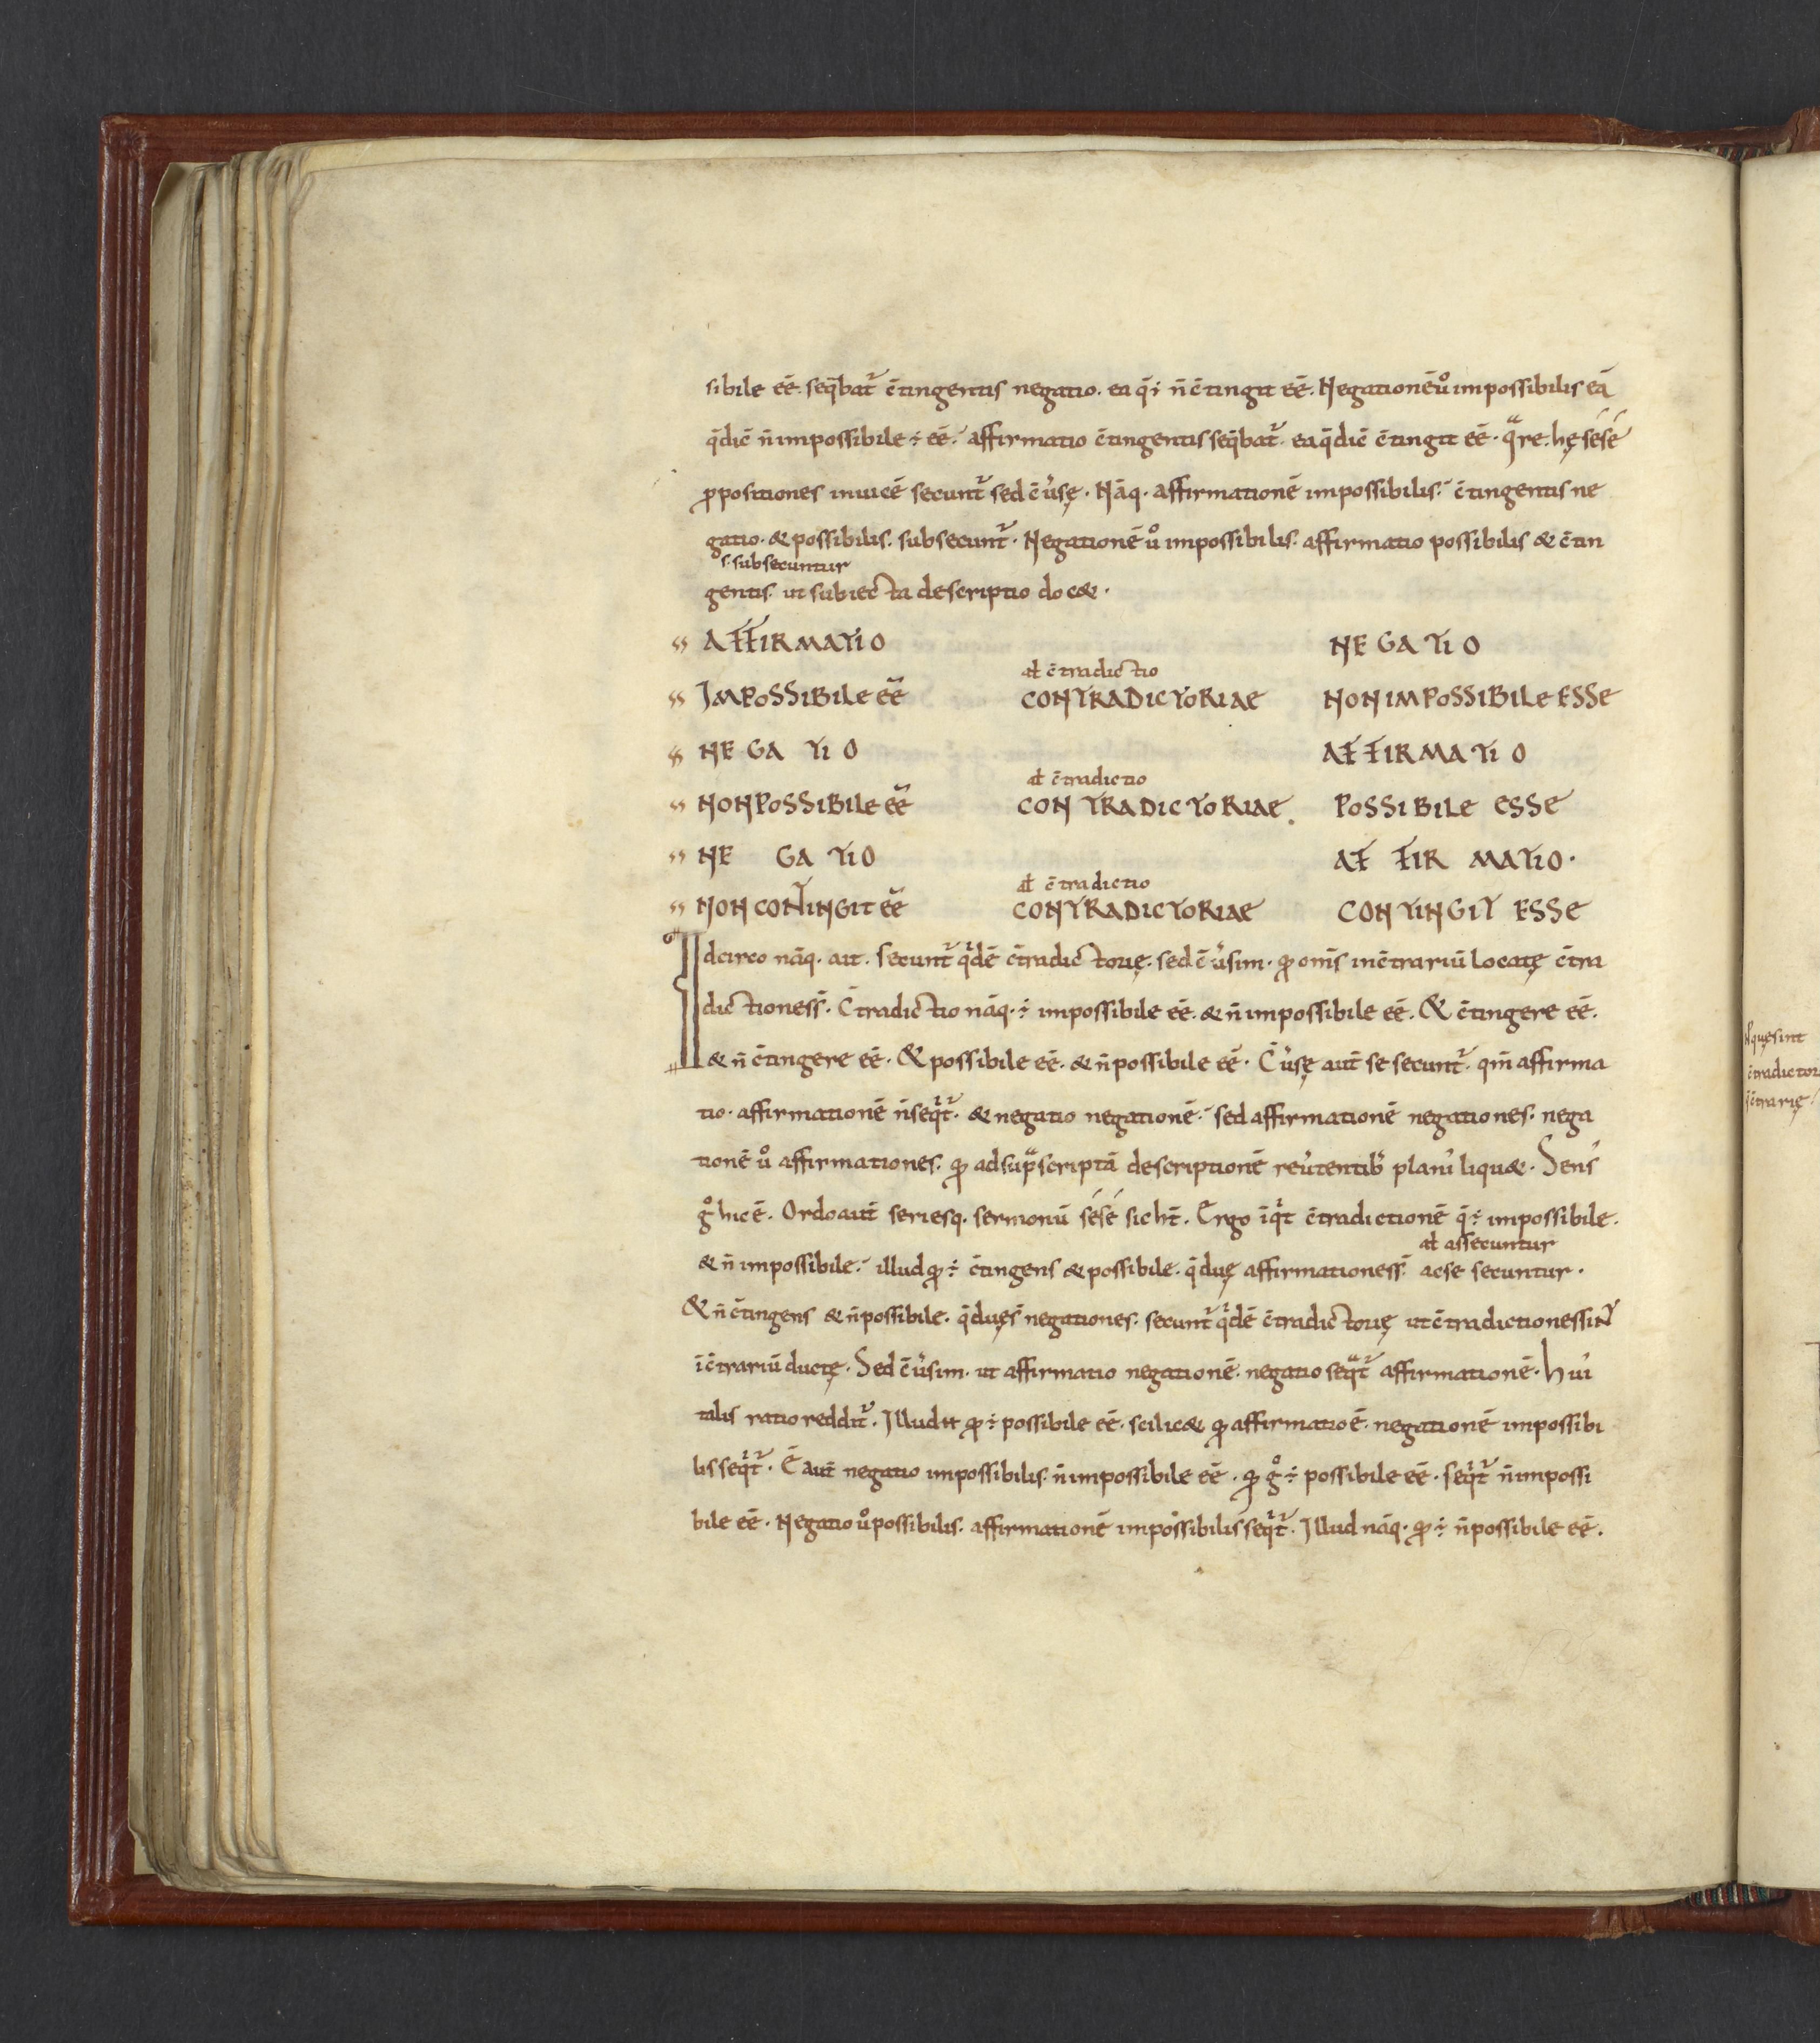 sibile eē. seq̄bat᷑ c̄tingentis negatio. ea q̄ ÷ n̄ c̄tingit eē. Negationē ů impossibilis eā
q̄ dic̄ n̄ impossibile ÷ eē. affirmatio c̄tingentis seq̄bat᷑. ea q̄ dic̄ c̄tingit eē. qͣre. hę sésé
ꝓpositiones inuicē secunt᷑ sed c̄uͥsę. Nāq. affirmationē impossibilis. c̄tingentis ne
gatio. & possibilis. subsecunt᷑. Negationē ů impossibilis. affirmatio possibilis & c̄tin
s. subsecuntur
gentis. ut subiecta descriptio doc&.
AFFIRMATIO NEGATIO
al̄ c̄tradictio
IMPOSSIBILE eē CONTRADICTORIAE NON IMPOSSIBILE ESSE
NEGATIO AFFIRMATIO
al̄ c̄tradictio
NON POSSIBILE eē CONTRADICTORIAE. POSSIBILE ESSE
NEGATIO AFFIRMATIO.
al̄ c̄tradictio
NON CONTINGIT eē CONTRADICTORIAE CONTINGIT ESSE
Idcirco nāq. ait. secunt᷑ qͥdē c̄tradictorię. sed c̄uͥsim. ꝙ om̄s in c̄trariū locatę c̄tra
dictiones s̄. C̄tradictio nāq. ÷ impossibile eē. & n̄ impossibile eē. & c̄tingere eē.
& n̄ c̄tingere eē. & possibile eē. & n̄ possibile eē. C̄uͥsę aut̄ se secunt᷑. qm̄ affirma
tio. affirmationē n̄ seqͥt᷑. & negatio negationē. sed affirmationē negationes. nega
tionē ů affirmationes. ꝙ ad supͣscriptā descriptionē reuͥtentib; planiꝰ liqu&. Sensꝰ
gͦ hic ē. Ordo aut̄ seriesq. sermonū sésé sic ht̄. Ergo īqͥt c̄tradictionē q̄ ÷ impossibile.
al̄ assecuntur
& n̄ impossibile. illud ꝙ ÷ c̄tingens & possibile. q̄ duę affirmationes s̄. ac se secuntur.
& n̄ c̄tingens & n̄ possibile. q̄ duę s̄ negationes. secunt᷑ qͥdē c̄tradictorię ut c̄tradictiones sinT
ī c̄trariū ductę. Sed c̄uͥsim. ut affirmatio negationē. negatio seqͣt᷑ affirmationē. Huiꝰ
talis ratio reddit᷑. Illud H ꝙ ÷ possibile eē. scilic& ꝙ affirmatio ē. negationē impossibi
lis seqͥt᷑. Ē aut̄ negatio impossibilis. n̄ impossibile eē. ꝙ gͦ ÷ possibile eē. seqͥt᷑ n̄ impossi
bile eē. Negatio ů possibilis. affirmationē impossibilis seqͥt᷑. Illud nāq. ꝙ ÷ n̄ possibile eē.
quę sint
c̄tradictor
c̄trarię